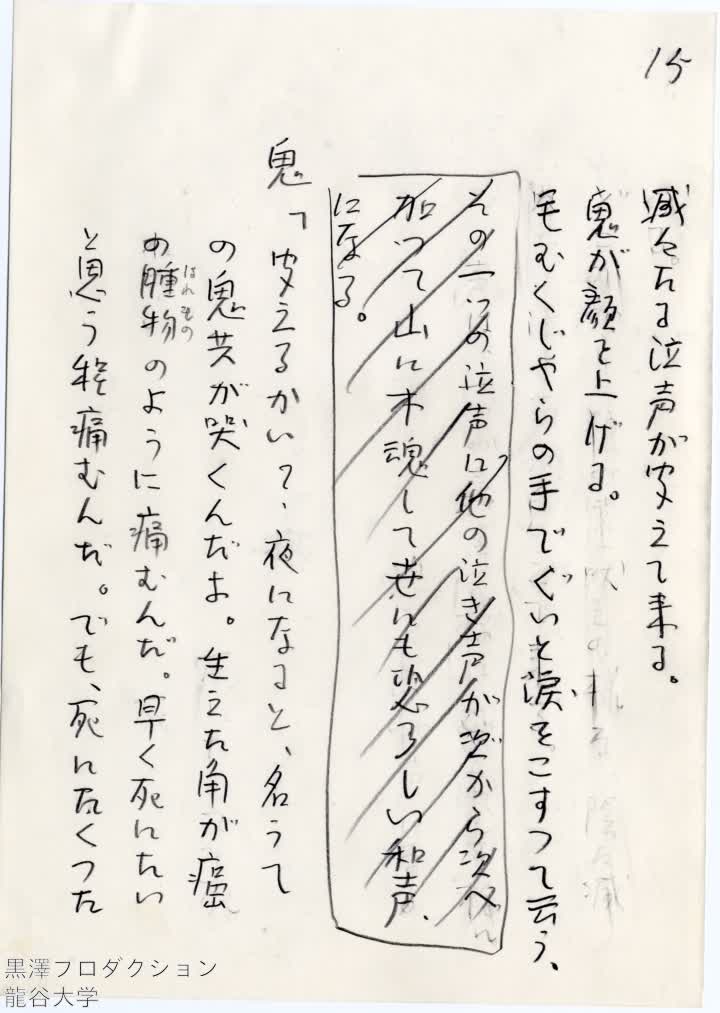 15
滅々たる泣声が聞えて来る。
鬼が顔を上げる。
毛むくじやらの手でぐいと涙をこすつて云う、
その一ツの泣声に他の泣き声が次から次へ
加つて山に木魂して世にも恐ろしい和声、
になる。
鬼「聞えるかい？、夜になると、名うて
の鬼共が哭くんだよ。生えた角が癌
の腫物のように痛むんだ。早く死にたい
はれもの
と思う程痛むんだ。でも、死にたくつた
黒澤プロダクション
龍谷大学